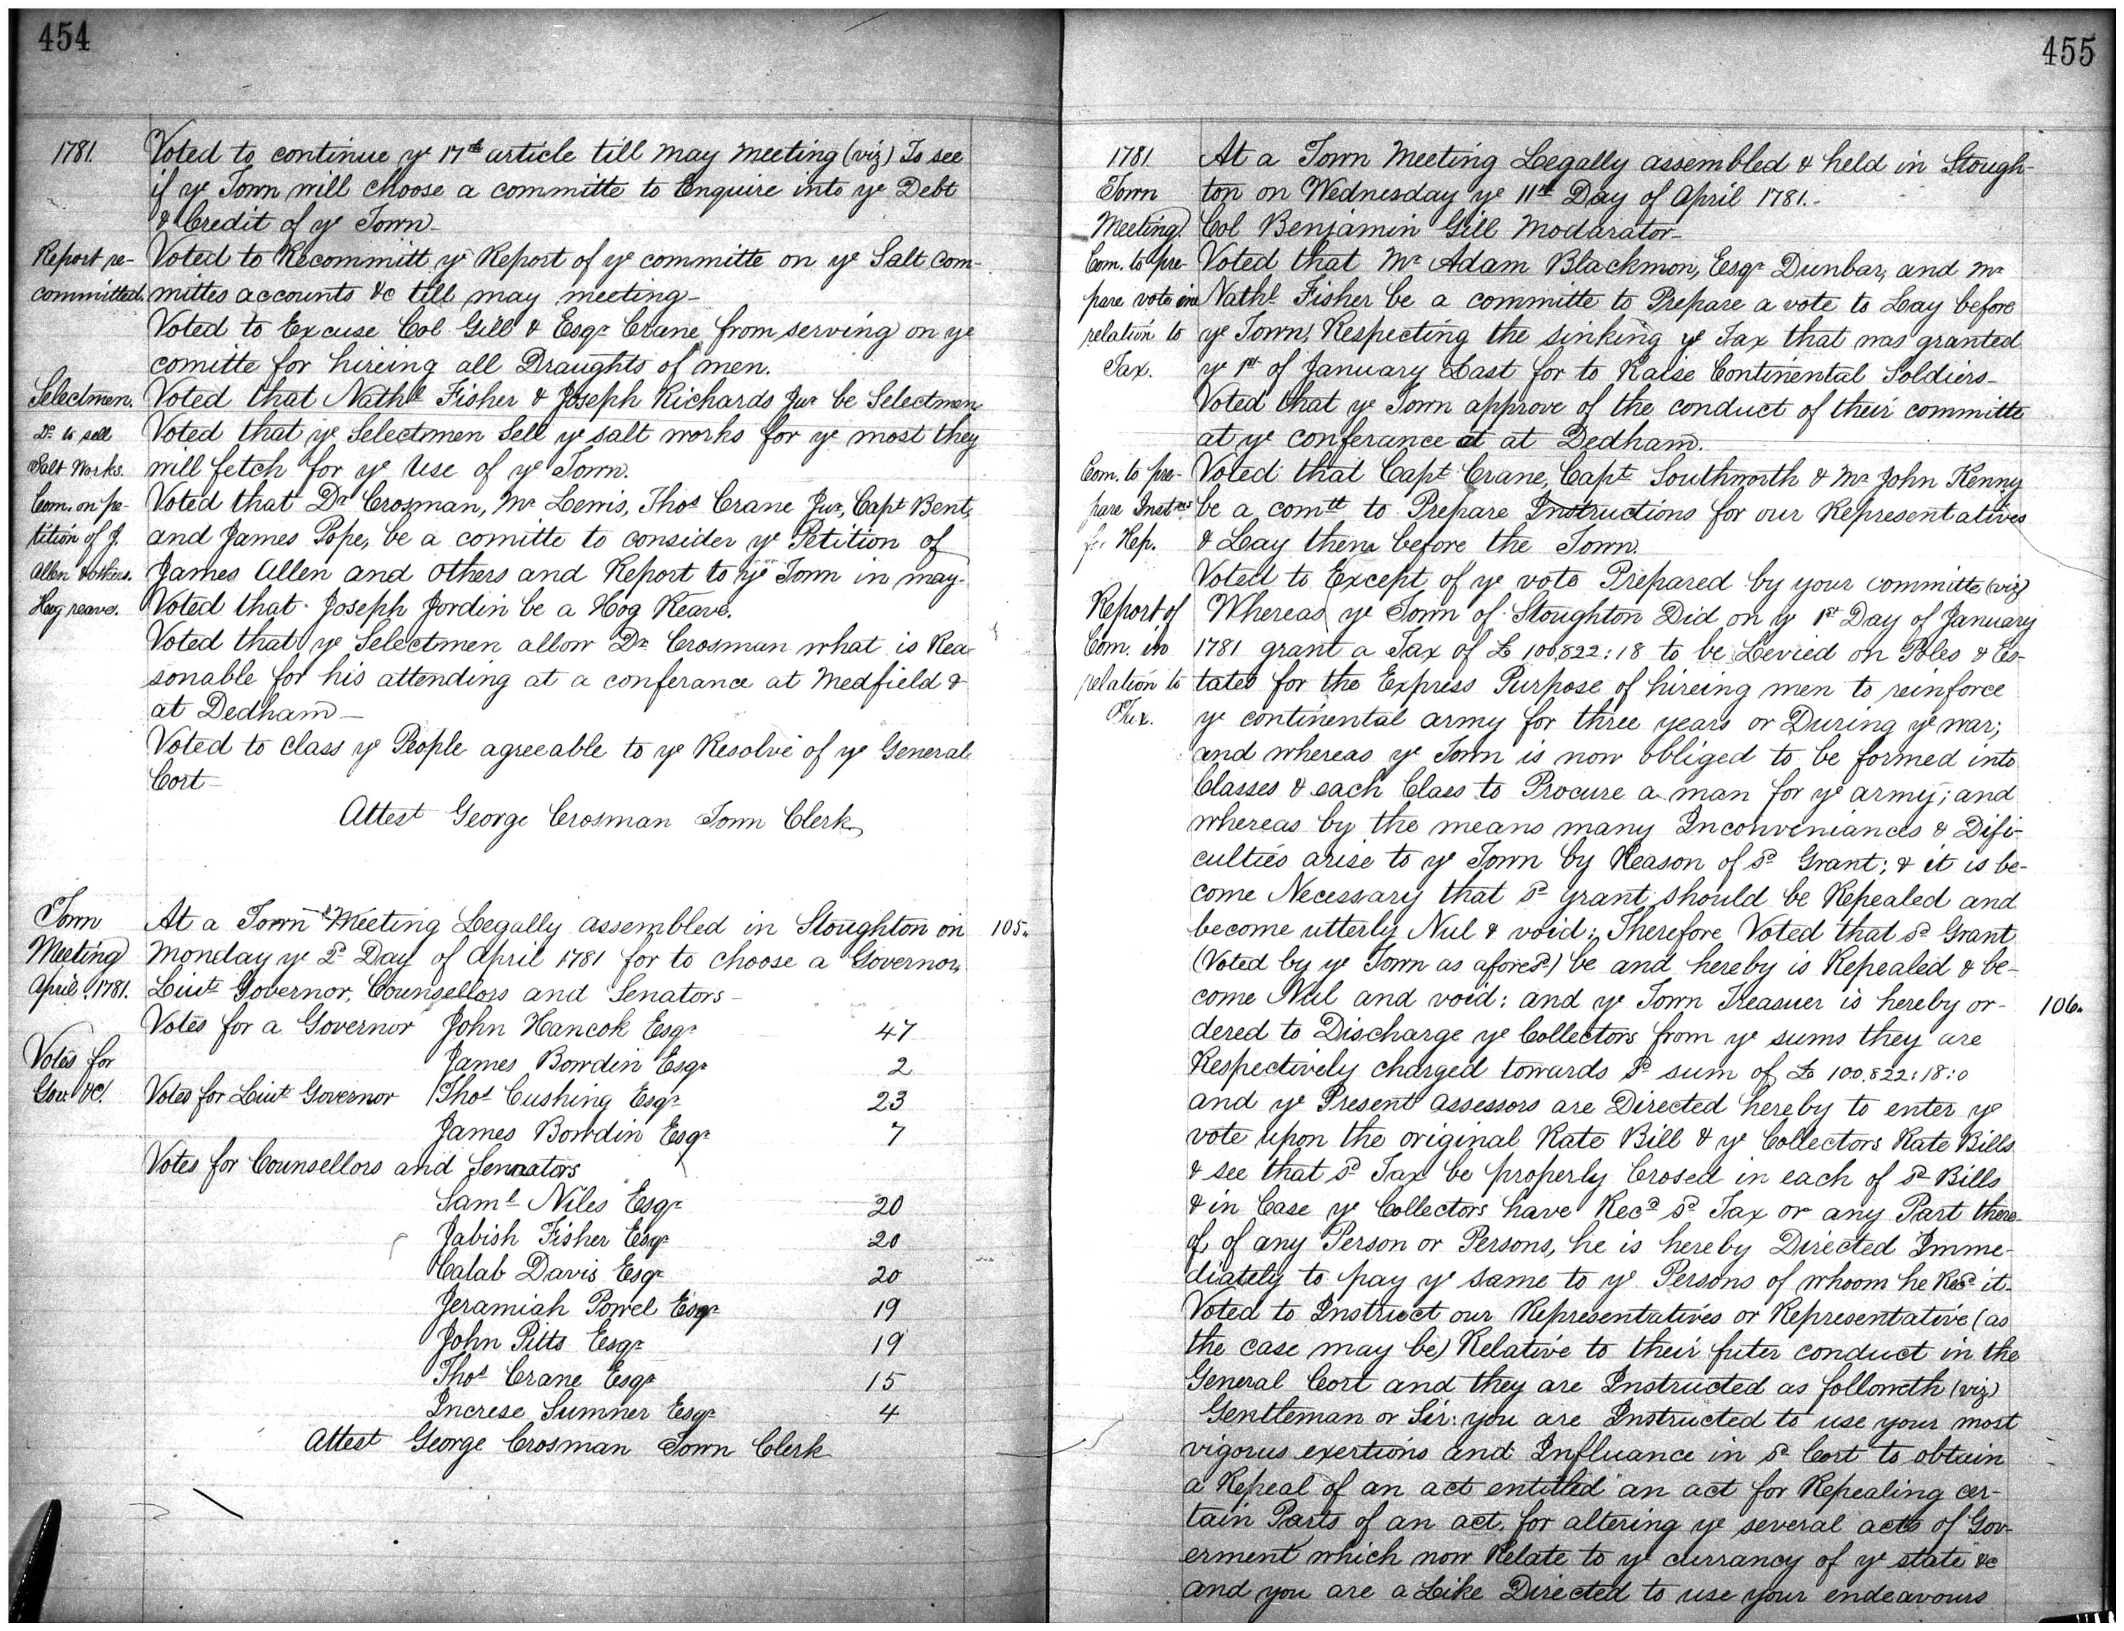 454
1781. Voted to continue ye 17th article till may meeting (viz) To see
if ye Town will choose a committe to Enquire into ye Debt
& Credit of ye Town-
Report re- Voted to Recommitt ye Report of ye committe on ye Salt com-
committed. mittes accounts &c till may meeting-
Voted to Excuse Col Gill & Esqr Crane from serving on ye
comitte for hireing all Draughts of men.
Selectmen. Voted that Nathl Fisher & Joseph Richards Jur be Selectmen
Do to sell Voted that ye Selectmen Sell ye salt works for ye most they
Salt Works. will fetch for ye Use of ye Town.
Com. on pe- Voted that Dr Crosman, Mr Lewis, Thos Crane Jur, Capt Bent,
tition of J. and James Pope, be a comitte to consider ye Petition of
Allen & others. James Allen and others and Report to ye Town in may-
Hog reave. Voted that Joseph Jordin be a Hog Reave.
Voted that ye Selectmen allow Dr Crosman what is Rea-
sonable for his attending at a conferance at Medfield &
at Dedham-
Voted to class ye People agreeable to ye Resolve of ye General
Cort-
Attest George Crosman Town Clerk
Town At a Town Meeting Legally assembled in Stoughton on 105.
Meeting Monday ye 2d Day of April 1781 for to choose a Governor,
April 1781. Liut Governor, Counsellors and Senators-
Votes for a Governor John Hancok Esqr 47
Votes for James Bowdin Esqr 2
Gov &c. Votes for Liut Governor Thos Cushing Esqr 23
James Bowdin Esqr 7
Votes for Counsellors and Senators
Saml Niles Esqr 20
Jabish Fisher Esqr 20
Calab Davis Esqr 20
Jeramiah Powel Esqr 19
John Pitts Esqr 19
Thos Crane Esqr 15
Increse Sumner Esqr 4
Attest George Crosman Town Clerk
455
1781. At a Town Meeting Legally assembled & held in Stough-
Town ton on Wednesday ye 11th Day of April 1781.-
Meeting. Col Benjamin Gill Modarator-
Com. to pre- Voted that Mr Adam Blackmon, Esqr Dunbar, and Mr
pare vote in Nathl Fisher be a committe to Prepare a vote to Lay before
relation to ye Town, Respecting the sinking ye Tax that was granted
Tax. ye 1st of January Last for to Raise Continental Soldiers-
Voted that ye Town approve of the conduct of their committe
at ye conferance at at Dedham.
Com. to pre- Voted that Capt Crane, Capt Southworth & Mr John Kenny
pare Instns be a comtt to Prepare Instructions for our Representatives
for Rep. & Lay them before the Town.
Voted to Except of ye vote Prepared by your committe (viz)
Report of Whereas ye Town of Stoughton Did on ye 1st Day of January
Com. in 1781 grant a Tax of £ 100,822:18 to be Levied on Poles & Es-
relation to tates for the Express Purpose of hireing men to reinforce
Tax. ye continental army for three years or During ye war;
and whereas ye Town is now obliged to be formed into
Classes & each Class to Procure a man for ye army; and
whereas by the means many Inconveniances & Difi-
culties arise to ye Town by Reason of sd Grant; & it is be-
come Necessary that sd grant should be Repealed and
become utterly Nul & void; Therefore Voted that sd Grant
(Voted by ye Town as aforesd) be and hereby is Repealed & be-
come Nul and void: and ye Town Treasuer is hereby or- 106.
dered to Discharge ye Collectors from ye sums they are
Respectively charged towards sd sum of £ 100.822:18:0
and ye Present assessors are Directed hereby to enter ye
vote upon the original Rate Bill & ye Collectors Rate Bills
& see that sd Tax be properly Crosed in each of sd Bills
& in Case ye Collectors have Recd sd Tax or any Part there-
of, of any Person or Persons, he is hereby Directed Imme-
diately to pay ye same to ye Persons of whoom he Recd it-
Voted to Instruct our Representatives or Representative (as
the case may be) Relative to their futer conduct in the
General Cort and they are Instructed as followeth (viz)
Gentleman or Sir: you are Instructed to use your most
vigorus exertions and Influance in sd Cort to obtain
a Repeal of an act entitled "an act for Repealing cer-
tain Parts of an act, for altering ye several acts of Gov-
erment which now Relate to ye currancy of ye state" &c
and you are a Like Directed to use your endeavours